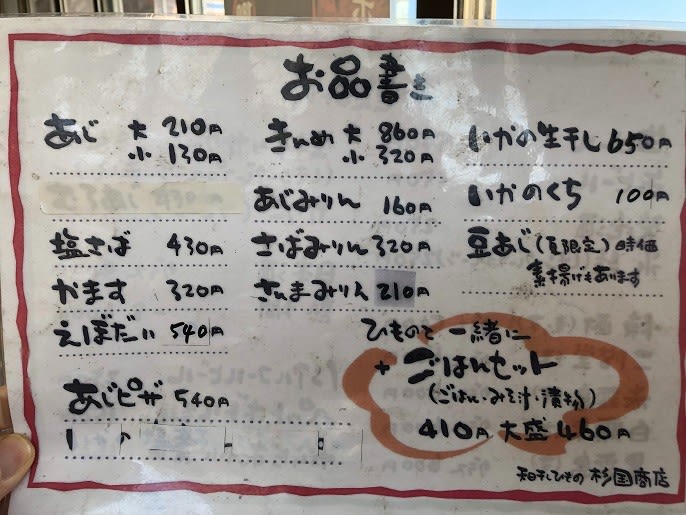 お品書き
あじ 大 210円
小 130円
塩さば 430円
かます 320円
えぼだい 540円
あじピザ 540円
きんめ 大 860円
小 320円
あじみりん 160円
さばみりん 320円
さんまみりん 210円
いかの生干し 650円
いかのくち 100円
豆あじ(夏限定)時価
素揚げもあります
ひものと一緒に
+ごはんセット
(ごはん・みそ汁・漬物)
410円 大盛460円
天日干しひもの 杉国商店